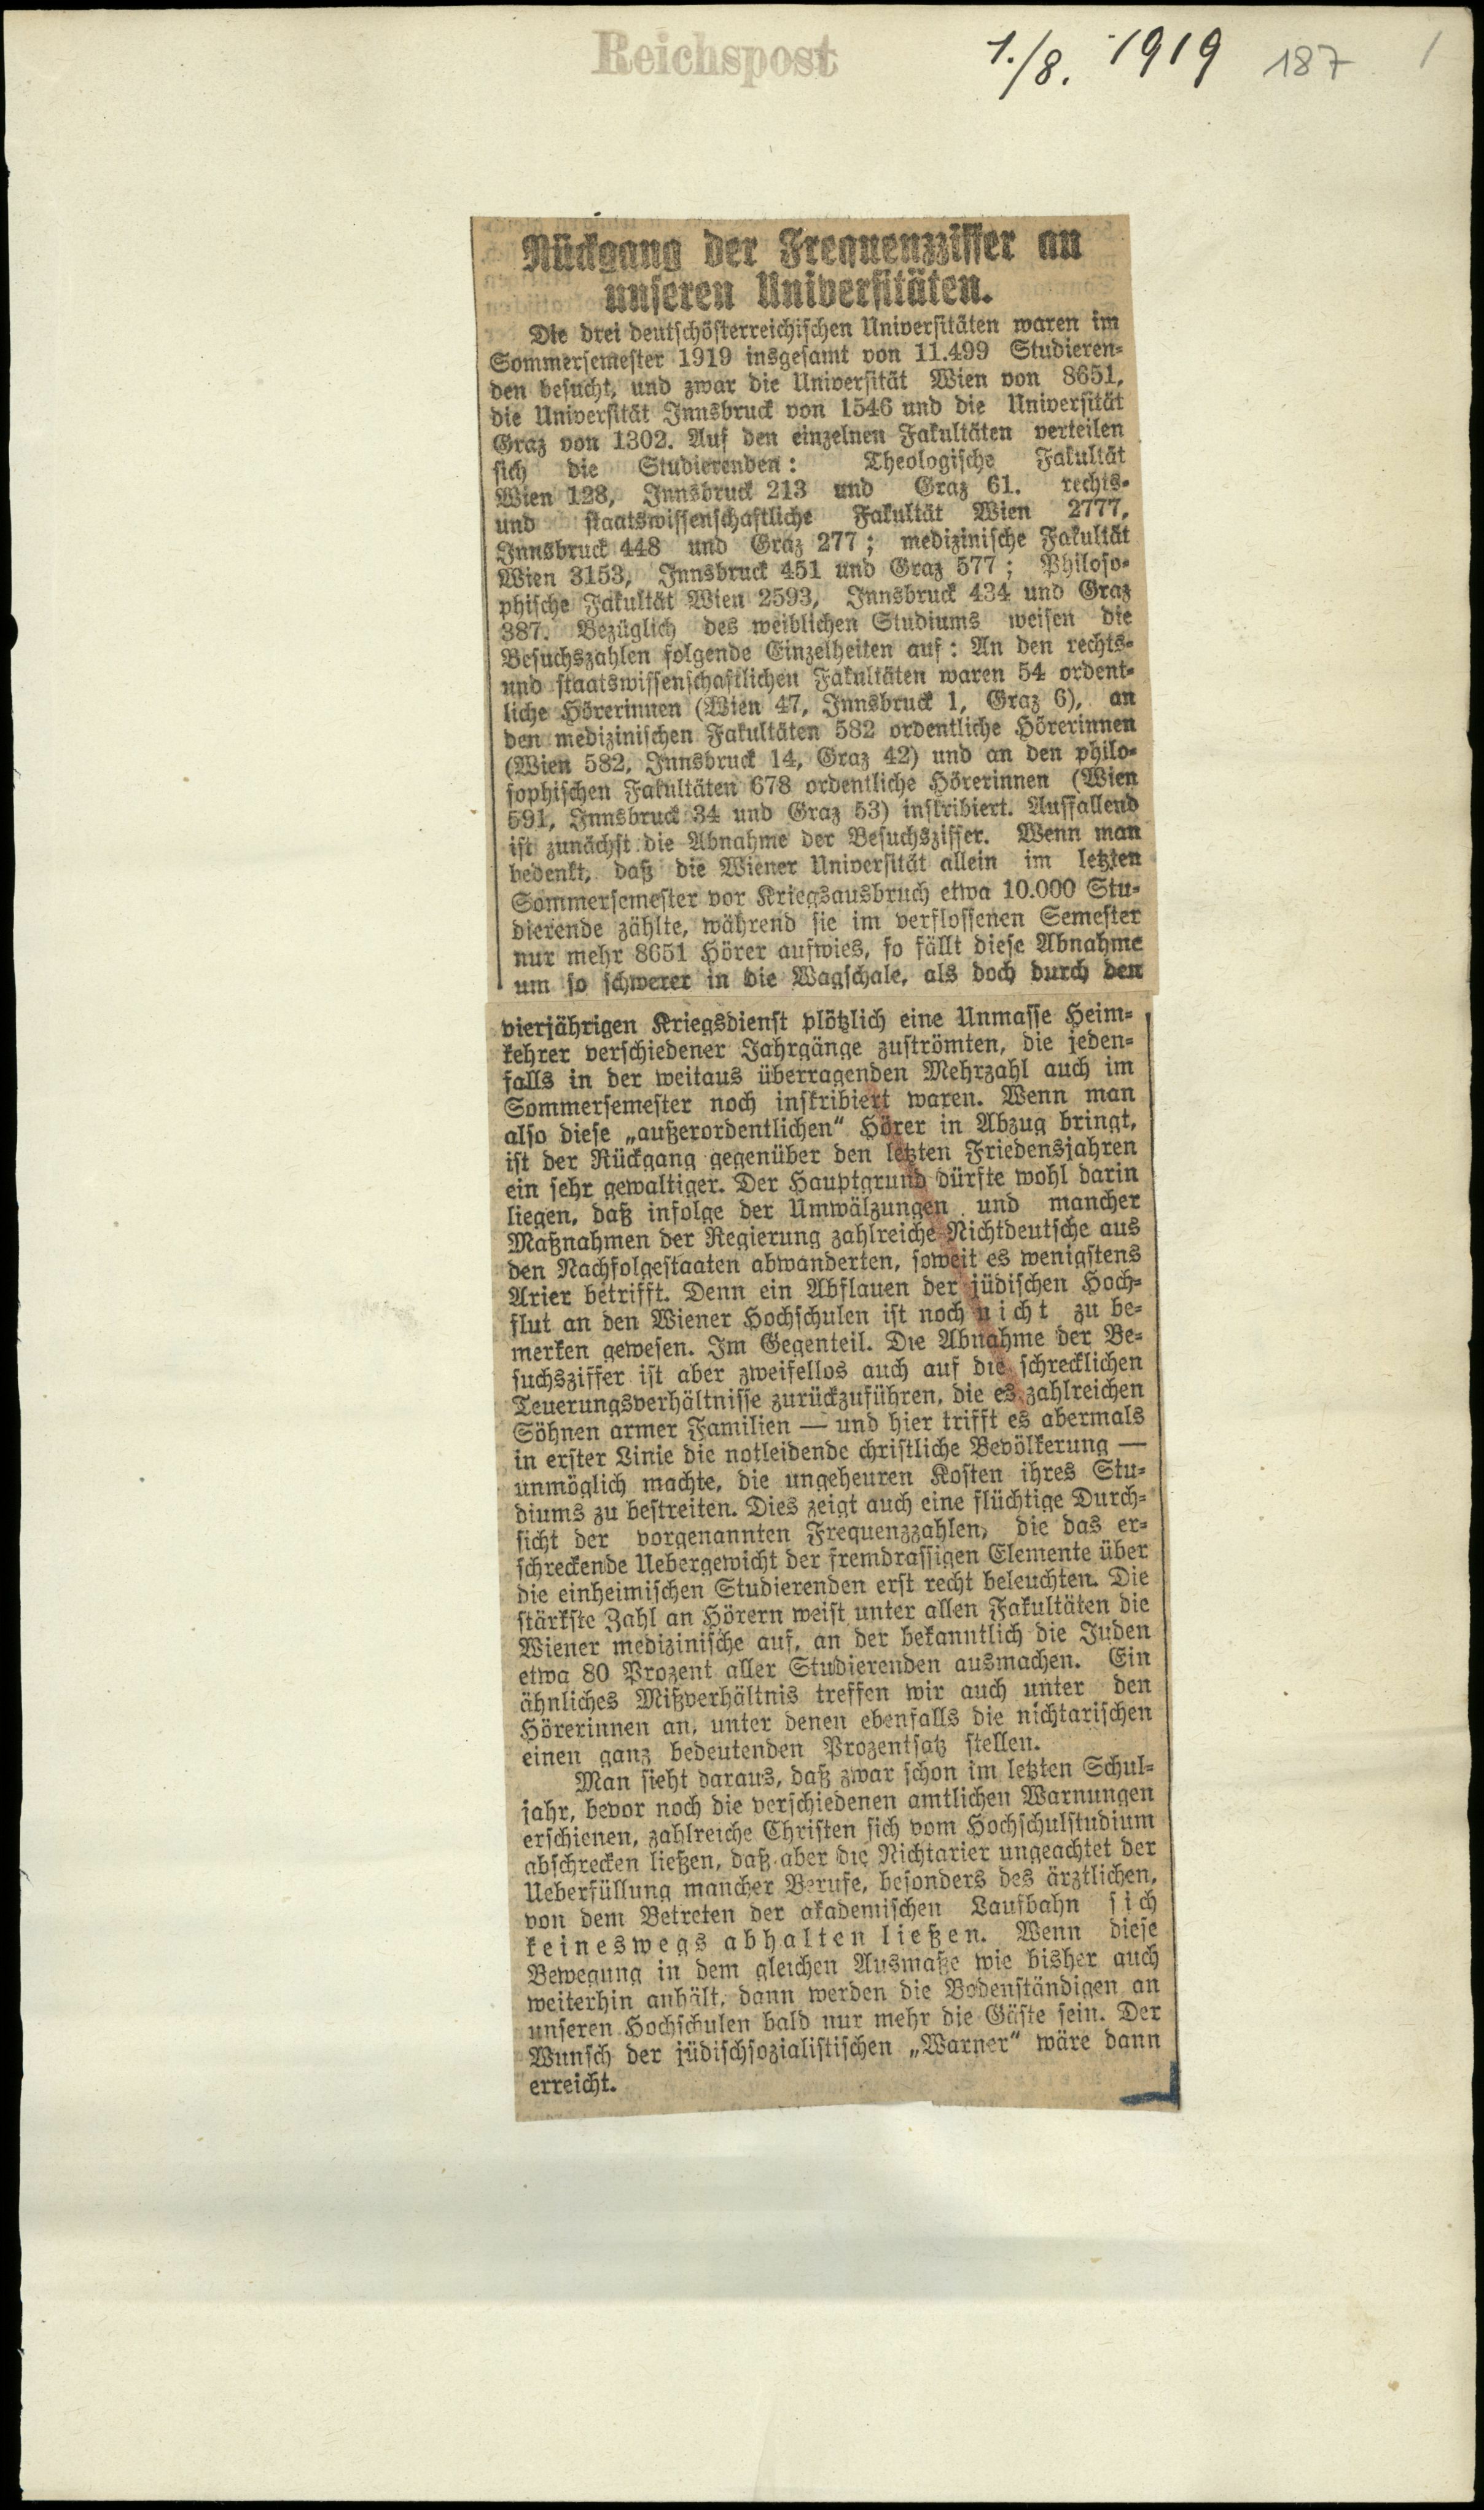 Reichspost
1./8. 1919
187
Rückgang der Frequenzziffer an
unseren Universitäten.
Die drei deutschösterreichischen Universitäten waren im
Sommersemester 1919 insgesamt von 11.499 Studieren-
den besucht, und zwar die Universität Wien von 8651,
die Universität Innsbruck von 1546 und die Universität
Graz von 1302. Auf den einzelnen Fakultäten verteilen
sich die Studierenden: Theologische Fakultät
Wien 128, Innsbruck 213 und Graz 61. rechts-
und staatswissenschaftliche Fakultät Wien 2777,
Innsbruck 448 und Graz 277; medizinische Fakultät
Wien 3153, Innsbruck 451 und Graz 577; Philoso-
phische Fakultät Wien 2593, Innsbruck 434 und Graz
387. Bezüglich des weiblichen Studiums weisen die
Besuchszahlen folgende Einzelheiten auf: An den rechts-
und staatswissenschaftlichen Fakultäten waren 54 ordent-
liche Hörerinnen (Wien 47, Innsbruck 1, Graz 6), an
den medizinischen Fakultäten 582 ordentliche Hörerinnen
(Wien 582, Innsbruck 14, Graz 42) und an den philo-
sophischen Fakultäten 678 ordentliche Hörerinnen (Wien
591, Innsbruck 34 und Graz 53) inskribiert. Auffallend
ist zunächst die Abnahme der Besuchsziffer. Wenn man
bedenkt, daß die Wiener Universität allein im letzten
Sommersemester vor Kriegsausbruch etwa 10.000 Stu-
dierende zählte, während sie im verflossenen Semester
nur mehr 8651 Hörer aufwies, so fällt diese Abnahme
um so schwerer in die Wagschale, als doch durch den
vierjährigen Kriegsdienst plötzlich eine Unmasse Heim-
kehrer verschiedener Jahrgänge zuströmten, die jeden-
falls in der weitaus überragenden Mehrzahl auch im
Sommersemester noch inskribiert waren. Wenn man
also diese „außerordentlichen“ Hörer in Abzug bringt,
ist der Rückgang gegenüber den letzten Friedensjahren
ein sehr gewaltiger. Der Hauptgrund dürfte wohl darin
liegen, daß infolge der Umwälzungen und mancher
Maßnahmen der Regierung zahlreiche Nichtdeutsche aus
den Nachfolgestaaten abwanderten, soweit es wenigstens
Arier betrifft. Denn ein Abflauen der jüdischen Hoch-
flut an den Wiener Hochschulen ist noch nicht zu be-
merken gewesen. Im Gegenteil. Die Abnahme der Be-
suchsziffer ist aber zweifellos auch auf die schrecklichen
Teuerungsverhältnisse zurückzuführen, die es zahlreichen
Söhnen armer Familien — und hier trifft es abermals
in erster Linie die notleidende christliche Bevölkerung —
unmöglich machte, die ungeheuren Kosten ihres Stu-
diums zu bestreiten. Dies zeigt auch eine flüchtige Durch-
sicht der vorgenannten Frequenzzahlen, die das er-
schreckende Uebergewicht der fremdrassigen Elemente über
die einheimischen Studierenden erst recht beleuchten. Die
stärkste Zahl an Hörern weist unter allen Fakultäten die
Wiener medizinische auf, an der bekanntlich die Juden
etwa 80 Prozent aller Studierenden ausmachen. Ein
ähnliches Mißverhältnis treffen wir auch unter den
Hörerinnen an, unter denen ebenfalls die nichtarischen
einen ganz bedeutenden Prozentsatz stellen.
Man sieht daraus, daß zwar schon im letzten Schul-
jahr, bevor noch die verschiedenen amtlichen Warnungen
erschienen, zahlreiche Christen sich vom Hochschulstudium
abschrecken ließen, daß aber die Nichtarier ungeachtet der
Ueberfüllung mancher Berufe, besonders des ärztlichen,
von dem Betreten der akademischen Laufbahn sich
keineswegs abhalten ließen. Wenn diese
Bewegung in dem gleichen Ausmaße wie bisher auch
weiterhin anhält, dann werden die Bodenständigen an
unseren Hochschulen bald nur mehr die Gäste sein. Der
Wunsch der jüdischsozialistischen „Warner“ wäre dann
erreicht.